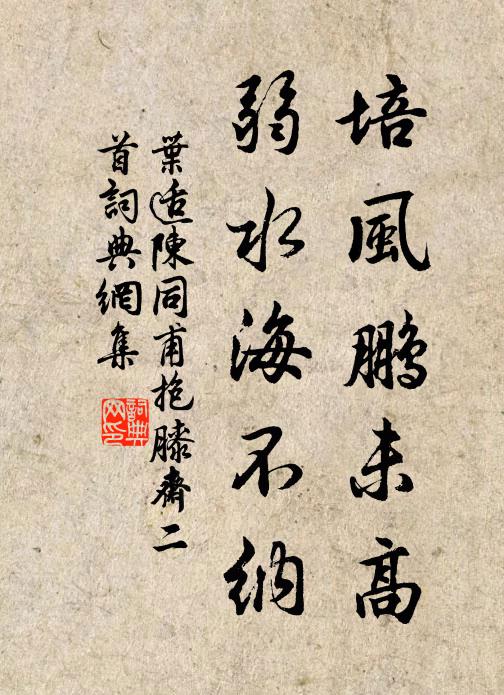 培風鵬未高
弱水海不納
葉适陳同甫抱膝齋二
首詞典網集
詞典
网印